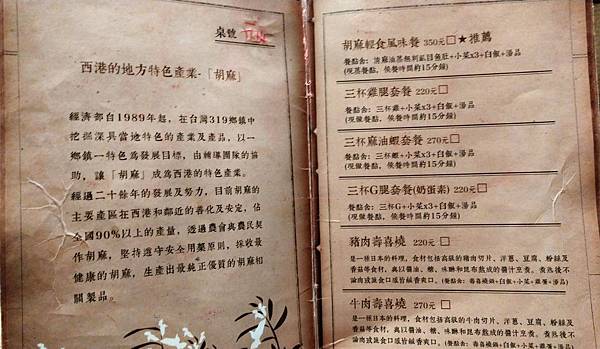 桌號
西港的地方特色產業-「胡麻」
經濟部自1989年起，在台灣319鄉鎮中
挖掘深具當地特色的產業及產品，以一
鄉鎮一特色為發展目標，由輔導團隊的協
助，讓「胡麻」成為西港的特色產業。
經過二十餘年的發展及努力，目前胡麻的
主要產區在西港和鄰近的善化及安定，佔
全國90%以上的產量，透過農會與農民契
作胡麻，堅持遵守安全用藥原則，採收最
健康的胡麻，生產出最純正優質的胡麻相
關製品。
胡麻輕食風味餐 350元□★推薦
餐點含: 清麻油蒸無刺虱目魚肚+小菜x3+白飯+湯品
(現蒸餐點，候餐時間約15分鐘)
三杯雞腿套餐 220元□
餐點含: 三杯雞+小菜x3+白飯+湯品
(現做餐點，候餐時間約15分鐘)
三杯麻油蝦套餐 270元□
餐點含: 三杯蝦+小菜x3+白飯+湯品
(現做餐點，候餐時間約15分鐘)
三杯G腿套餐(奶蛋素) 220元□
餐點含: 三杯G+小菜x3+白飯+湯品
(現做餐點，候餐時間約15分鐘)
豬肉壽喜燒 220元□
是一種日本的料理，食材包括高級的豬肉切片、洋蔥、豆腐、粉絲及
香菇等食材，再以醬油、糖、味醂和昆布熬成的醬汁烹煮。煮熟後不
論肉或菜食口感皆鹹香爽口。(餐點含: 壽喜燒鍋+白飯+小菜+雞蛋+湯品)
牛肉壽喜燒 270元□
是一種日本的料理，食材包括高級的牛肉切片、洋蔥、豆腐、粉絲及
香菇等食材，再以醬油、糖、味醂和昆布熬成的醬汁烹煮。煮熟後不
論肉或菜食口感皆鹹香爽口。(餐點含: 壽喜燒鍋+白飯+小菜+雞蛋+湯品)